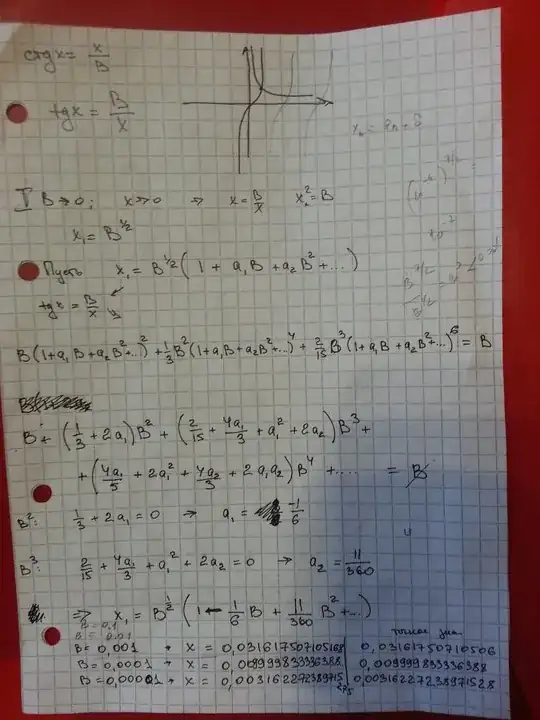 ctgx = x/B
tgx = B/x
I B→0; x→0 ⇒ x = B/x x₁² = B
x₁ = B^{1/2}
Пусть x₁ = B^{1/2} (1 + a₁B + a₂B² + ...)
tgx = B/x
B(1+a₁B+a₂B²+...)² + 1/3 B²(1+a₁B+a₂B²+...)⁴ + 2/15 B³(1+a₁B+a₂B²+...)⁶ = B
B + (1/3 + 2a₁)B² + (2/15 + 4a₁/3 + a₁² + 2a₂)B³ +
+ (4a₁/5 + 2a₁² + 4a₂/3 + 2a₁a₂)B⁴ + .... = B
B²: 1/3 + 2a₁ = 0 → a₁ = -1/6
B³: 2/15 + 4a₁/3 + a₁² + 2a₂ = 0 → a₂ = 11/360
⇒ x₁ = B^{1/2} (1 - 1/6 B + 11/360 B² + ...)
B = 0,1
B = 0,01
B = 0,001 → x = 0,0316175071051 0,03161750710506
B = 0,0001 → x = 0,009999833336388 0,009999833336388
B = 0,00001 → x = 0,003162272389715 0,00316227238971528